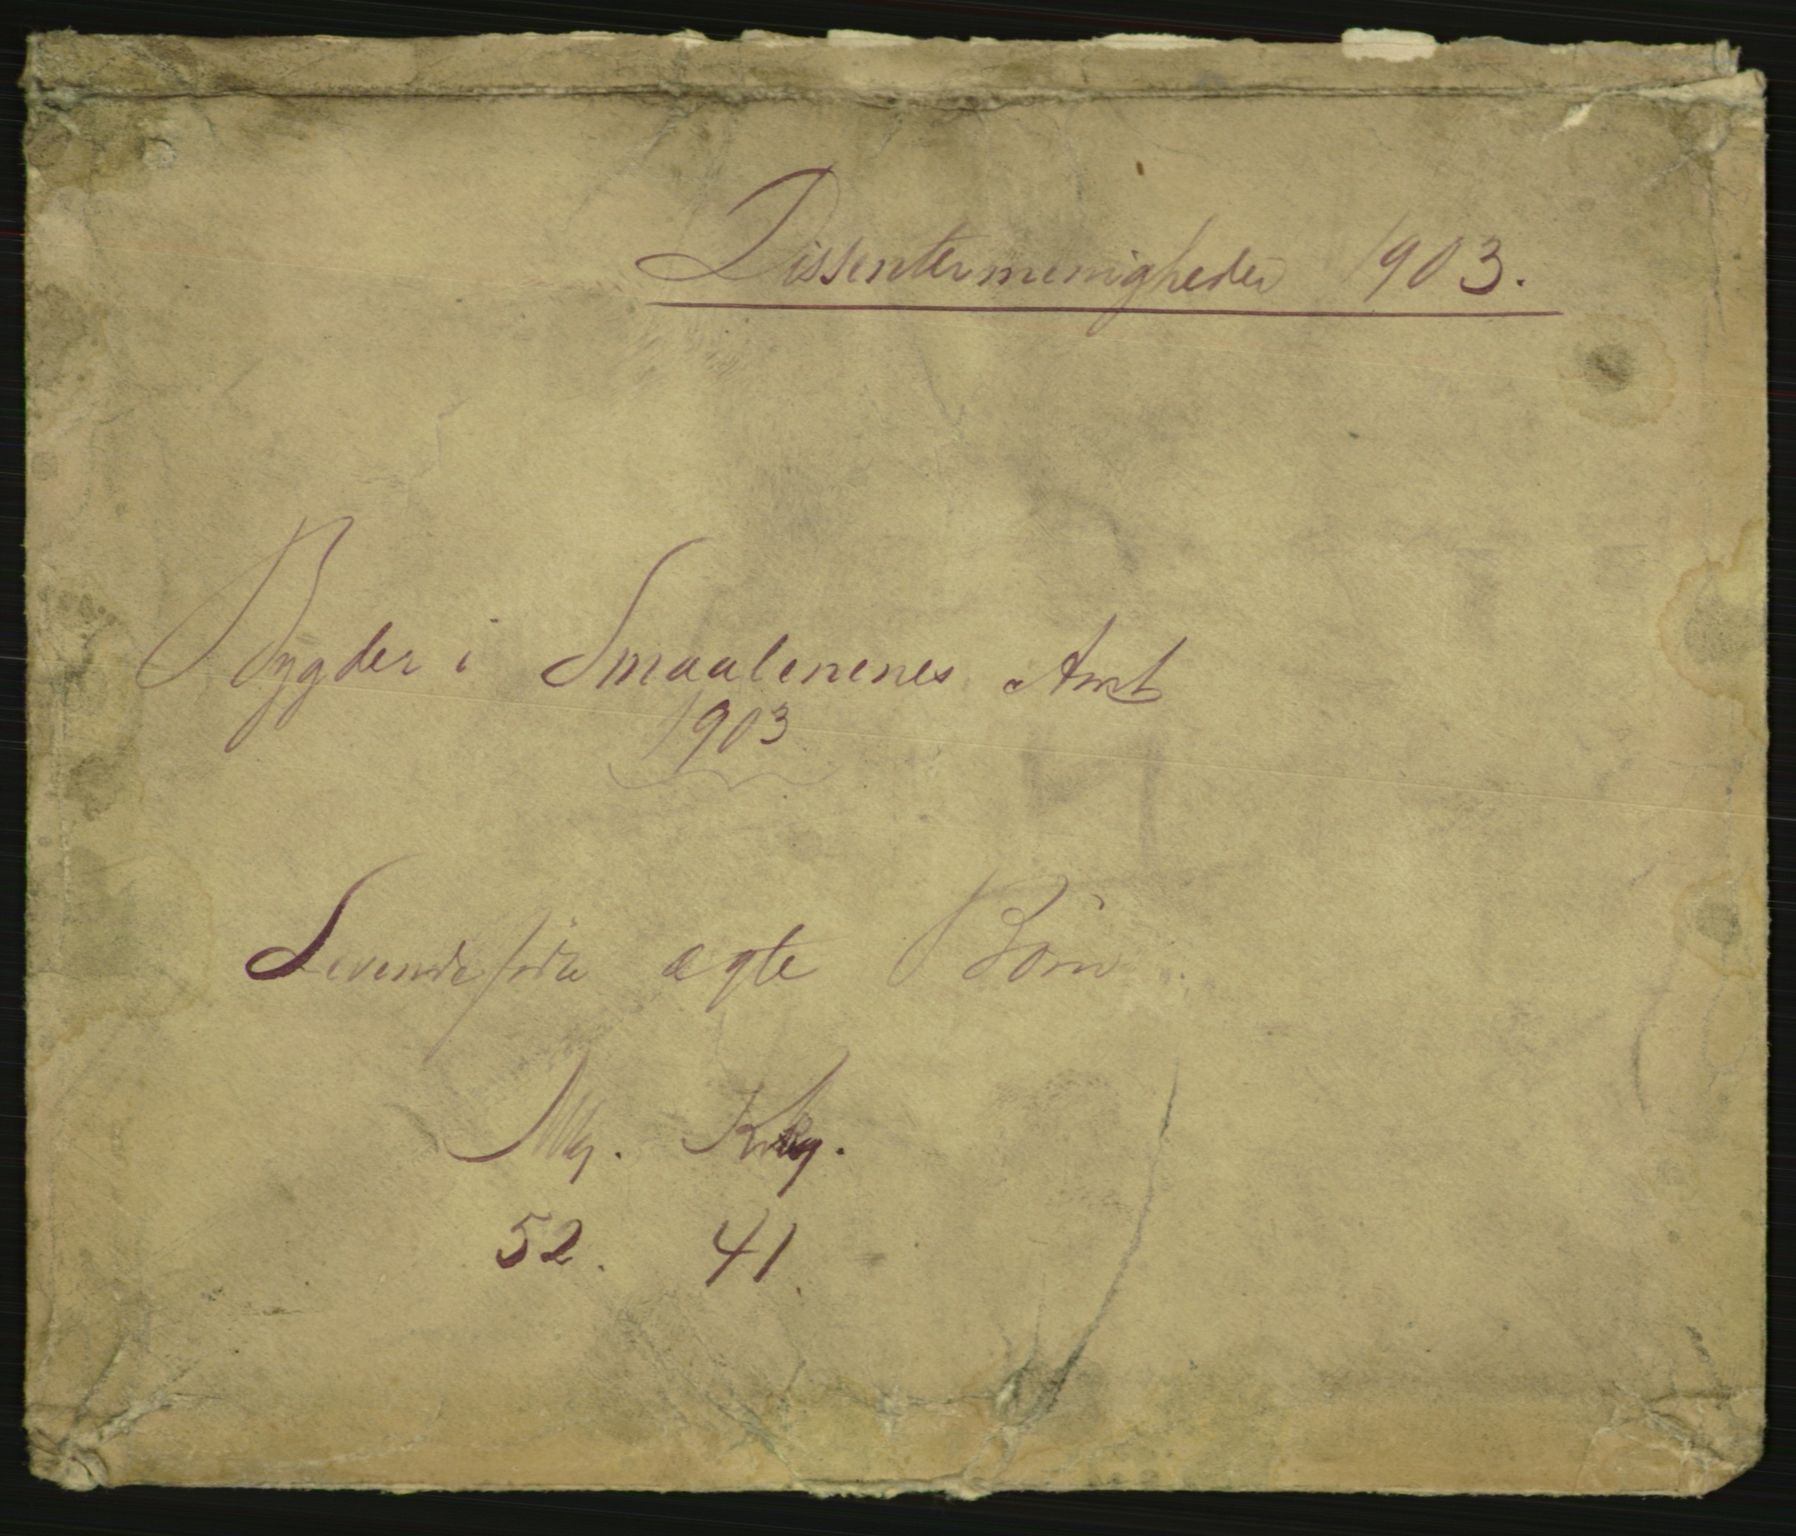 Dissentermenigheder 1903.
Bygder i Smaalenenes Amt
1903
Levendefødte ægte Børn.
Mkj. Kvkj.
52. 41.